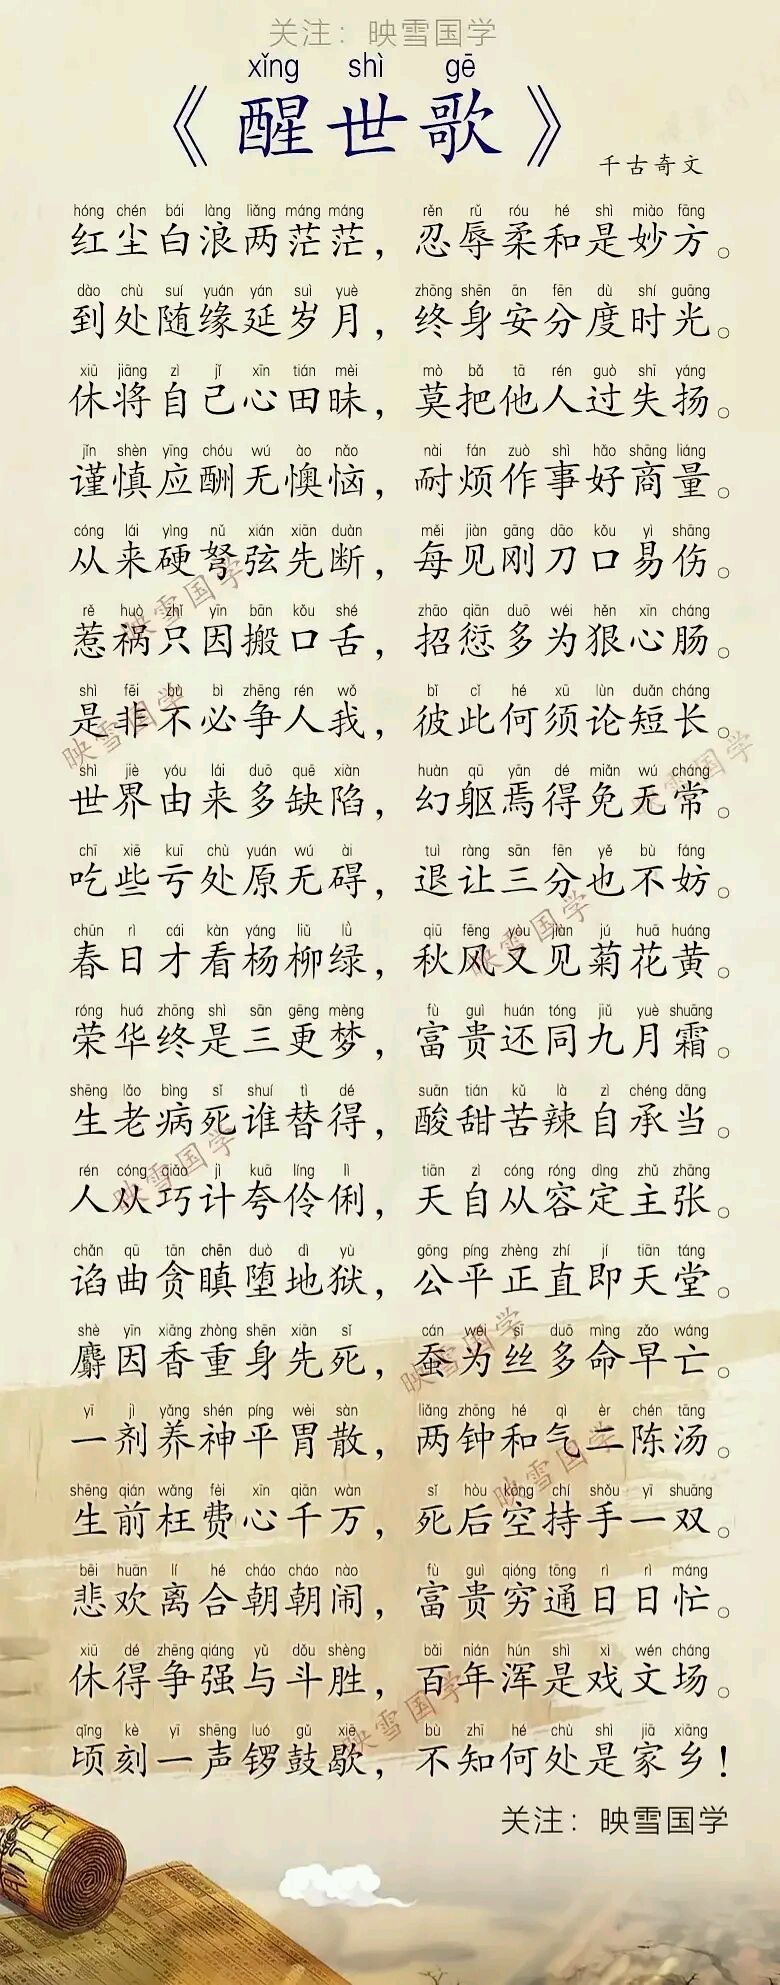 关注：映雪国学
xǐng shì gē
《醒世歌》
千古奇文
hóng chén bái làng liǎng máng máng rěn rǔ róu hé shì miào fāng
红尘白浪两茫茫，忍辱柔和是妙方。
dào chù suí yuán yán suì yuè zhōng shēn ān fēn dù shí guāng
到处随缘延岁月，终身安分度时光。
xiū jiāng zì jǐ xīn tián mèi mò bǎ tā rén guò shī yáng
休将自己心田昧，莫把他人过失扬。
jǐn shèn yīng chóu wú ào nǎo nài fán zuò shì hǎo shāng liáng
谨慎应酬无懊恼，耐烦作事好商量。
cóng lái yìng nǔ xián xiān duàn měi jiàn gāng dāo kǒu yì shāng
从来硬弩弦先断，每见刚刀口易伤。
rě huò zhǐ yīn bān kǒu shé zhāo qiān duō wéi hěn xīn cháng
惹祸只因搬口舌，招愆多为狠心肠。
shì fēi bù bì zhēng rén wǒ bǐ cǐ hé xū lùn duǎn cháng
是非不必争人我，彼此何须论短长。
shì jiè yóu lái duō quē xiàn huàn qū yān dé miǎn wú cháng
世界由来多缺陷，幻躯焉得免无常。
chī xiē kuī chù yuán wú ài tuì ràng sān fēn yě bù fáng
吃些亏处原无碍，退让三分也不妨。
chūn rì cái kàn yáng liǔ lǜ qiū fēng yòu jiàn jú huā huáng
春日才看杨柳绿，秋风又见菊花黄。
róng huá zhōng shì sān gēng mèng fù guì huán tóng jiǔ yuè shuāng
荣华终是三更梦，富贵还同九月霜。
shēng lǎo bìng sǐ shuí tì dé suān tián kǔ là zì chéng dāng
生老病死谁替得，酸甜苦辣自承当。
rén cóng qiǎo jì kuā líng lì tiān zì cóng róng dìng zhǔ zhāng
人从巧计夸伶俐，天自从容定主张。
chǎn qū tān chēn duò dì yù gōng píng zhèng zhí jí tiān táng
谄曲贪瞋堕地狱，公平正直即天堂。
shè yīn xiāng zhòng shēn xiān sǐ cán wéi sī duō mìng zǎo wáng
麝因香重身先死，蚕为丝多命早亡。
yī jì yǎng shén píng wèi sàn liǎng zhōng hé qì èr chén tāng
一剂养神平胃散，两钟和气二陈汤。
shēng qián wǎng fèi xīn qiān wàn sǐ hòu kōng chí shǒu yī shuāng
生前枉费心千万，死后空持手一双。
bēi huān lí hé cháo cháo nào fù guì qióng tōng rì rì máng
悲欢离合朝朝闹，富贵穷通日日忙。
xiū dé zhēng qiáng yǔ dǒu shèng bǎi nián hún shì xì wén cháng
休得争强与斗胜，百年浑是戏文场。
qǐng kè yī shēng luó gǔ xiē bù zhī hé chù shì jiā xiāng
顷刻一声锣鼓歇，不知何处是家乡！
关注：映雪国学
映雪国学
映雪国学
映雪国学
映雪国学
映雪国学
映雪国学
映雪国学
映雪国学